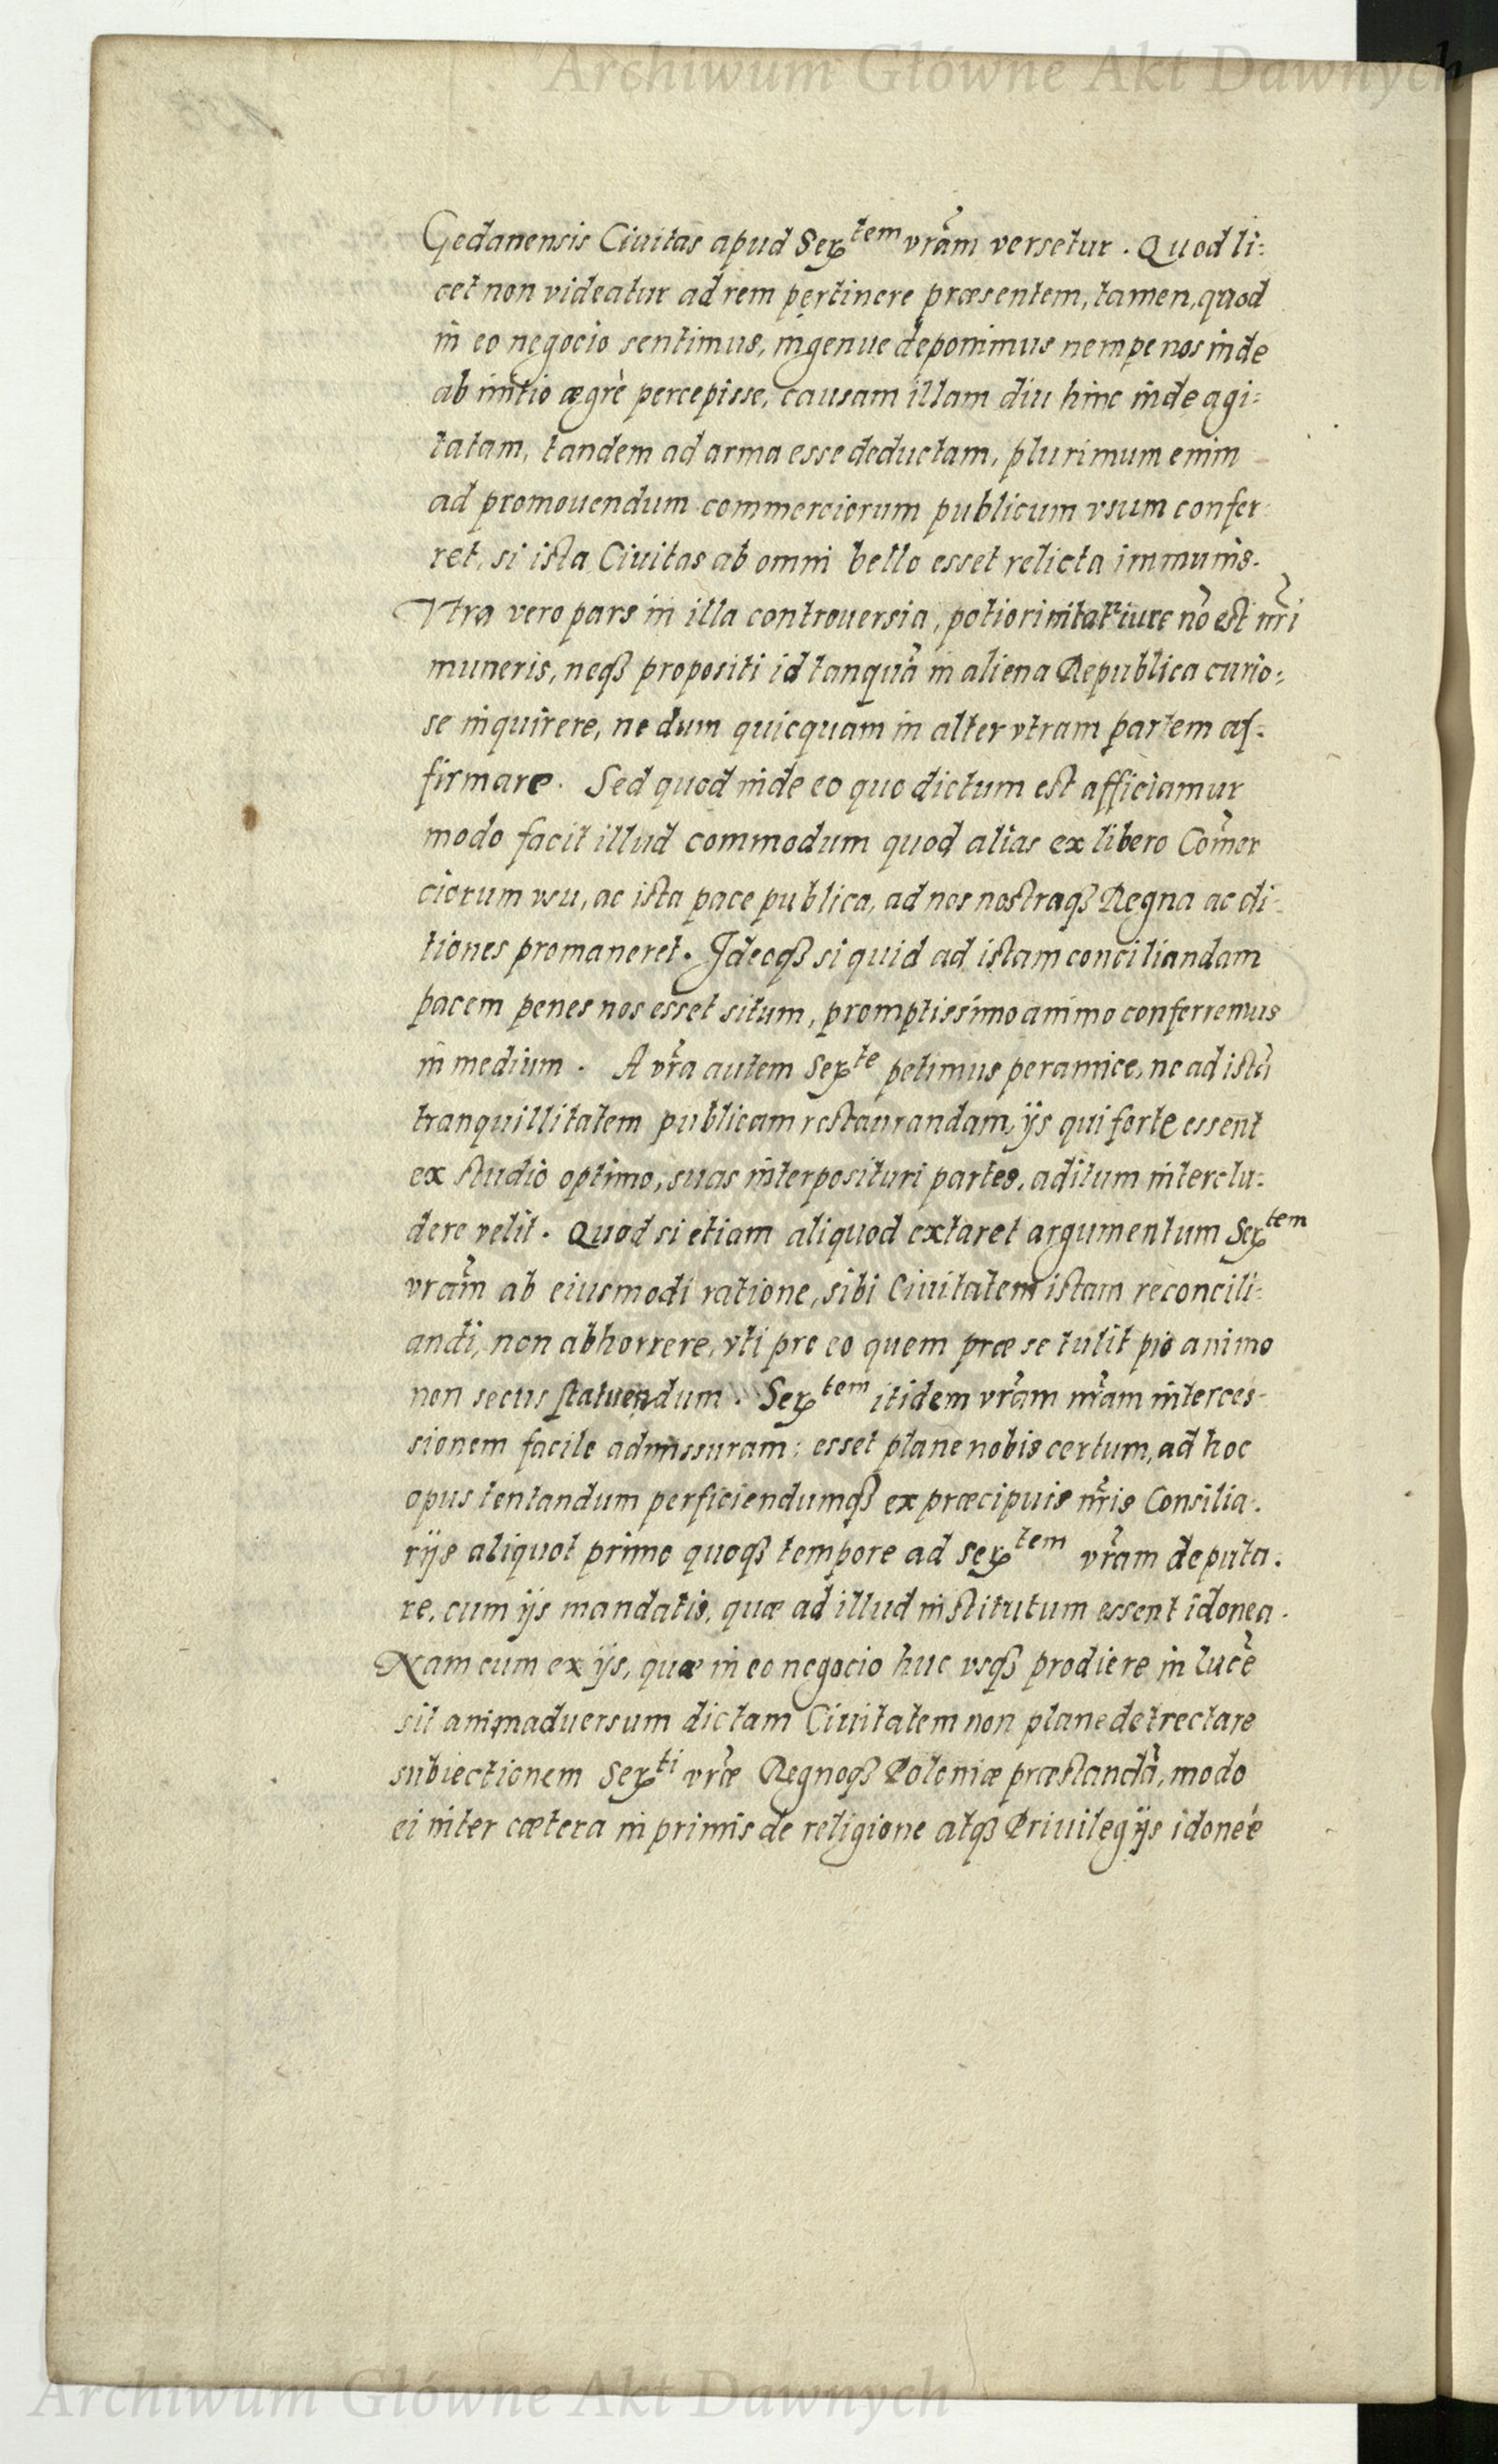 Archiwum Główne Akt Dawnych
Gedanensis Ciuitas apud Serᵗᵉᵐ vr̃am versetur. Quod li:
cet non videatur ad rem pertinere præsentem, tamen, quod
in eo negocio sentimus, ingenue deponimus nempe nos inde
ab initio ægrè percepisse, causam illam diu hinc inde agi:
tatam, tandem ad arma esse deductam, plurimum enim
ad promouendum commerciorum publicum vsum confer:
ret, si ista Ciuitas ab omni bello esset relicta immunis.
Vtra vero pars in illa controuersia, potiori nitatʳ iure nõ est nr̃i
muneris, neqȝ propositi id tanquã in aliena Republica curio:
se inquirere, nedum quicquam in alterutram partem af:
firmare. Sed quod inde eo quo dictum est afficiamur
modo facit illud commodum quod alias ex libero Com̃er
ciorum vsu, ac ista pace publica, ad nos nostraqȝ Regna ac di:
tiones promaneret. Ideoqȝ si quid ad istam conciliandam
pacem penes nos esset situm, promptissimo animo conferremus
in medium. A vr̃a autem Serᵗᵉ petimus peramice, ne ad istã
tranquillitatem publicam restaurandam, ijs qui forte essent
ex studio optimo, suas interposituri partes, aditum interclu:
dere velit. Quod si etiam aliquod extaret argumentum Serᵗᵉᵐ
vr̃am ab eiusmodi ratione, sibi Ciuitatem istam reconcili:
andi, non abhorrere, vti pro eo quem præ se tulit pio animo
non secus statuendum. Serᵗᵉᵐ itidem vr̃am nr̃am interces:
sionem facile admissuram: esset plane nobis certum, ad hoc
opus tentandum perficiendumqȝ ex præcipuis nr̃is Consilia:
rijs aliquot primo quoqȝ tempore ad Serᵗᵉᵐ vr̃am deputa:
re, cum ijs mandatis, quæ ad illud institutum essent idonea.
Nam cum ex ijs, quæ in eo negocio huc vsqȝ prodiere in lucẽ
sit animaduersum dictam Ciuitatem non plane detrectare
subiectionem Serᵗⁱ vr̃æ Regnoqȝ Poloniæ præstandã, modo
ei inter cætera in primis de religione atqȝ Priuilegijs idoneè
Archiwum Główne Akt Dawnych